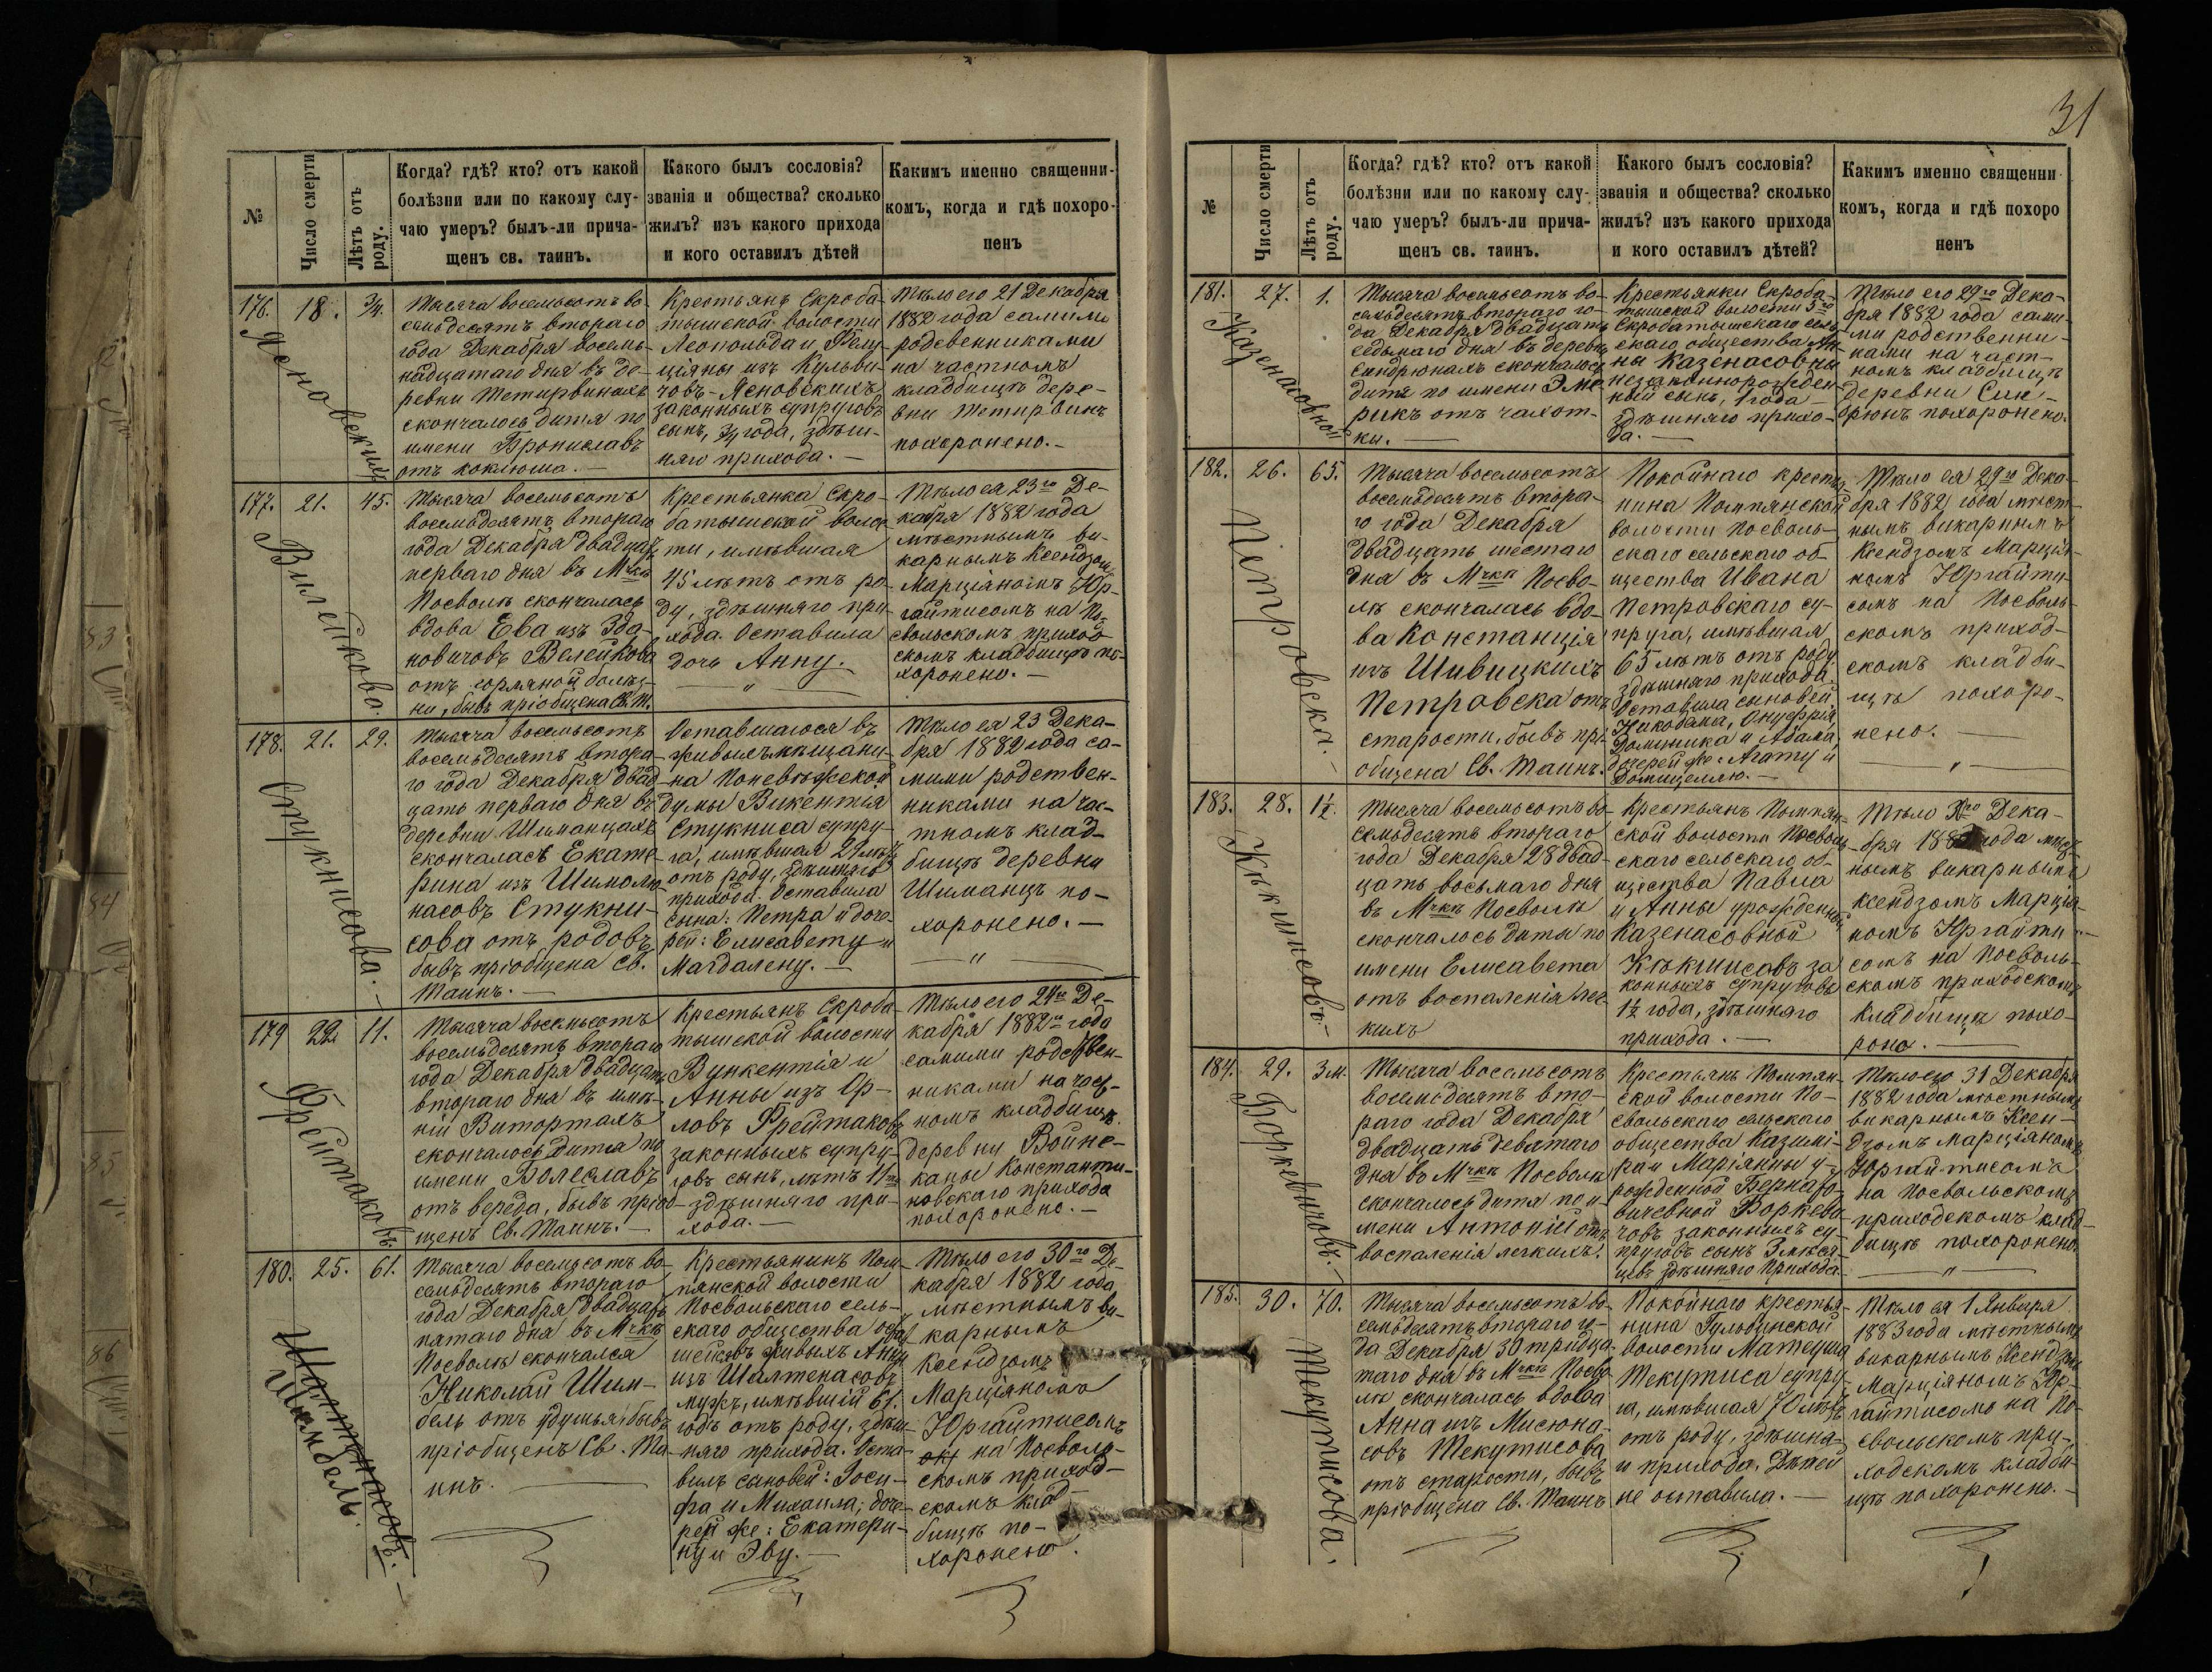 31
№
Число смерти
Лѣтъ отъ роду.
Когда? гдѣ? кто? отъ какой
болѣзни или по какому слу-
чаю умеръ? былъ-ли прича-
щенъ св. таинъ.
Какого былъ сословія?
званія и общества? сколько
жилъ? изъ какого прихода
и кого оставилъ дѣтей
Каким​ъ именно священни-
комъ, когда и гдѣ похоро-
ненъ
176.
18.
3/4.
Ясновскихъ
Тысяча восемьсотъ во-
семьдесятъ втораго
года Декабря восемь-
надцатаго дня въ де-
ревни Тетирвинахъ
скончалось дитя по
имени Брониславъ
отъ коклюша. —
Крестьянъ Скроба-
тышской волости
Леопольда и Фели-
ціяны изъ Кульви-
човъ - Ясновскихъ
законныхъ супруговъ
сынъ, 3/4 года, здѣш-
няго прихода. —
Тѣло его 21 Декабря
1882 года самими
родсвенниками
на частномъ
кладбищѣ дере-
вни Тетирвинъ
похоронено. -
177.
21.
45.
Вилейкова.
Тысяча восемьсотъ
восемьдесятъ втораго
года Декабря двадцать
перваго дня въ Мѣчкѣ
Посволѣ скончалась
вдова Ева изъ Зда-
новичовъ Велейкова
отъ горляной болѣз-
ни, бывъ пріобщена Св. Т.
Крестьянка Скро-
батышской волос-
ти, имѣвшая
45 лѣтъ отъ ро-
ду, здѣшняго при-
хода. Оставила
дочь Анну.
— „ —
Тѣло ея 23го Де-
кабря 1882 года
мѣстнымъ ви-
карнымъ Ксендзомъ
Марціяномъ Юр-
гайтисомъ на По-
свольскомъ приход-
скомъ кладбищѣ по-
хоронено. —
178.
21.
29.
Стукнисова. —
Тысяча восемьсотъ
восемьдесятъ втора-
го года Декабря двад-
цать перваго дня въ
деревни Шиманцахъ
скончалась Екате-
рина изъ Шимолю-
насовъ Стукни-
сова отъ родовъ,
бывъ пріобщена Св.
Таинъ. —
Оставшагося въ
живыхъ мѣщани-
на Поневѣжской
думы Викентія
Стукниса супру-
га, имѣвшая 29 лѣтъ
отъ роду, здѣшняго
прихода. Оставила
сына: Петра и доче-
рей: Елисавету и
Магдалену. —
Тѣло ея 23 Дека-
бря 1882 года са-
мими родствен-
никами на час-
тномъ клад-
бищѣ деревни
Шиманцъ по-
хоронено. —
— „ —
179
22
11.
Фрейтаковъ.
Тысяча восемьсотъ
восемьдесятъ втораго
года Декабря двадцать
втораго дня въ имѣ-
ніи Витортахъ
скончалось дитя по
имени Болеславъ
отъ вереда, бывъ пріоб-
щенъ Св. Таинъ. —
Крестьянъ Скроба-
тышской волости
Вункентія и
Анны изъ Ор-
ловъ Фрейтаковъ
законныхъ супру-
говъ сынъ, лѣтъ 11ти
здѣшняго при-
хода. —
Тѣло его 24го Де-
кабря 1882го года
самими родствен-
никами на част-
номъ кладбищѣ
деревни Войне-
каны Константи-
новскаго прихода
похоронено. —
180.
25.
61.
Шимбель.
Тысяча восемьсотъ во-
семьдесятъ втораго
года Декабря двадцать
пятаго дня въ Мѣчкѣ
Посволѣ скончался
Николай Шим-
бель отъ удушья, бывъ
пріобщенъ Св. Та-
инъ. —
Крестьянинъ Пом-
пянской волости
Посвольскаго сель-
скаго общества остав-
шейся въ живыхъ Анны
изъ Шалтенасовъ
мужъ, имѣвшій 61.
годъ отъ роду, здѣш-
няго прихода. Оста-
вилъ сыновей: Іоси-
фа и Михаила; доче-
рей же: Екатери-
ну и Эву. —
Тѣло его 30го Де-
кабря 1882 года
мѣстнымъ ви-
карнымъ
Ксендзомъ
Марціяномъ
Юргайтисомъ
на Посволь-
скомъ приход-
скомъ клад-
бищѣ по-
хоронено.
№
Число смерти
Лѣтъ отъ роду.
Когда? гдѣ? кто? отъ какой
болѣзни или по какому слу-
чаю умеръ? былъ-ли прича-
щенъ св. таинъ.
Какого былъ сословія?
званія и общества? сколько
жилъ? изъ какого прихода
и кого оставилъ дѣтей?
Какимъ именно священни
комъ, когда и гдѣ похоро
ненъ
181.
27.
1.
Казенасовной
Тысяча восемьсотъ во-
семьдесятъ втораго го-
да Декабря двадцать
седьмаго дня въ деревни
Синдрюнахъ скончалось
дитя по имени Эме-
рикъ отъ чахот-
ки. —
Крестьянки Скроба-
тышской волости 3го
Скробатышскаго сель-
скаго общества Ан-
ны Казенасовны
незаконнорожден-
ный сынъ, 1 года
здѣшняго прихо-
да. —
Тѣло его 29го Дека-
бря 1882 года сами-
ми родственни-
ками на част-
номъ кладбищѣ
деревни Син-
дрюнъ похоронено.
182.
26.
65.
Петровска. —
Тысяча восемьсотъ
восемьдесятъ втора-
го года Декабря
двадцать шестаго
дня въ Мѣчкѣ Посво-
лѣ скончалась вдо-
ва Констанція
изъ Шивицкихъ
Петровска отъ
старости, бывъ прі-
общена Св. Таинъ.
Покойнаго крестья-
нина Помпянской
волости Посволь-
скаго сельскаго об-
щества Ивана
Петровскаго су-
пруга, имѣвшая
65 лѣтъ отъ роду,
здѣшняго прихода.
Оставила сыновей:
Никодима, Онуфрія,
Доминика и Адама,
дочерей же: Агату и
Домицеллю. —
Тѣло ея 29го Дека-
бря 1882 года мѣст-
нымъ викарнымъ
Ксендзомъ Марція-
номъ Юргайти-
сомъ на Посволь-
скомъ приход-
скомъ кладби-
щѣ похоро-
нено. —
— „ —
183.
28.
1½.
Кѣкшисовъ. —
Тысяча восемьсотъ во-
семьдесятъ втораго
года Декабря 28 двад-
цать восьмаго дня
въ Мѣчкѣ Посволѣ
скончалось дитя по
имени Елисавета
отъ воспаленія лег-
кихъ
Крестьянъ Помпян-
ской волости Посволь-
скаго сельскаго об-
щества Павла
и Анны урожденной
Казенасовной
Кѣкшисовъ за
конныхъ супруговъ
1½ года, здѣшняго
прихода. —
Тѣло 30го Дека-
бря 188 года мѣст-
нымъ викарнымъ
ксендзомъ Марція-
номъ Юргайти-
сомъ на Посволь-
скомъ приходскомъ
кладбищѣ похо-
роно. —
184.
29.
3 м.
Боркевичовъ. —
Тысяча восемьсотъ
восемьдесятъ вто-
раго года Декабря
двадцать девятаго
дня въ Мѣчкѣ Посволѣ
скончалось дитя по и-
мени Антоній отъ
воспаленія легкихъ.
Крестьянъ Помпян-
ской волости По-
свольскаго сельскаго
общества Казимі-
ра и Маріянны у-
рожденной Бернато-
вичевной Боркеви-
човъ законныхъ су-
пруговъ сынъ 3 мѣся-
цевъ здѣшняго прихода.
Тѣло его 31 Декабря
1882 года мѣстнымъ
викарнымъ Ксен-
дзомъ Марціяномъ
Юргайтисомъ
на Посвольскомъ
приходскомъ клад-
бищѣ похоронено.
— „ —
185.
30.
70.
Текутисова.
Тысяча восемьсотъ во-
семьдесятъ втораго го-
да Декабря 30 тридца-
таго дня въ Мѣчкѣ Посво-
лѣ скончалась вдова
Анна изъ Мисюна-
совъ Текутисова
отъ старости, бывъ
пріобщена Св. Таинъ
Покойнаго крестья-
нина Гульбинской
волости Матеуша
Текутиса супру-
га, имѣвшая 70 лѣтъ
отъ роду, здѣшня-
го прихода. Дѣтей
не оставила. —
Тѣло ея 1 Января
1883 года мѣстнымъ
викарнымъ Ксендзомъ
Марціяномъ Юр-
гайтисомъ на По-
свольскомъ при-
ходскомъ кладби-
щѣ похоронено. —